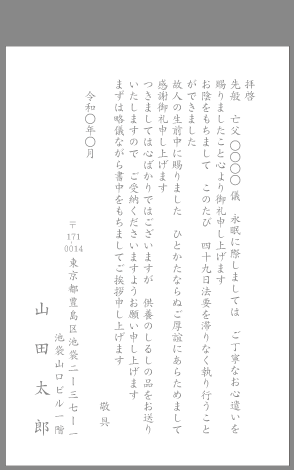 拝啓
先般 亡父 〇〇〇〇 儀 永眠に際しましては ご丁寧なお心遣いを
賜りましたこと心より御礼申し上げます
お陰をもちまして このたび 四十九日法要を滞りなく執り行うこと
ができました
故人の生前中に賜りました ひとかたならぬご厚誼にあらためまして
感謝御礼申し上げます
つきましては心ばかりではございますが 供養のしるしの品をお送り
いたしますので ご受納くださいますようお願い申し上げます
まずは略儀ながら書中をもちましてご挨拶申し上げます
敬具
令和〇年〇月
〒171-0014
東京都豊島区池袋二ー三七ー一
池袋山口ビル一階
山田太郎